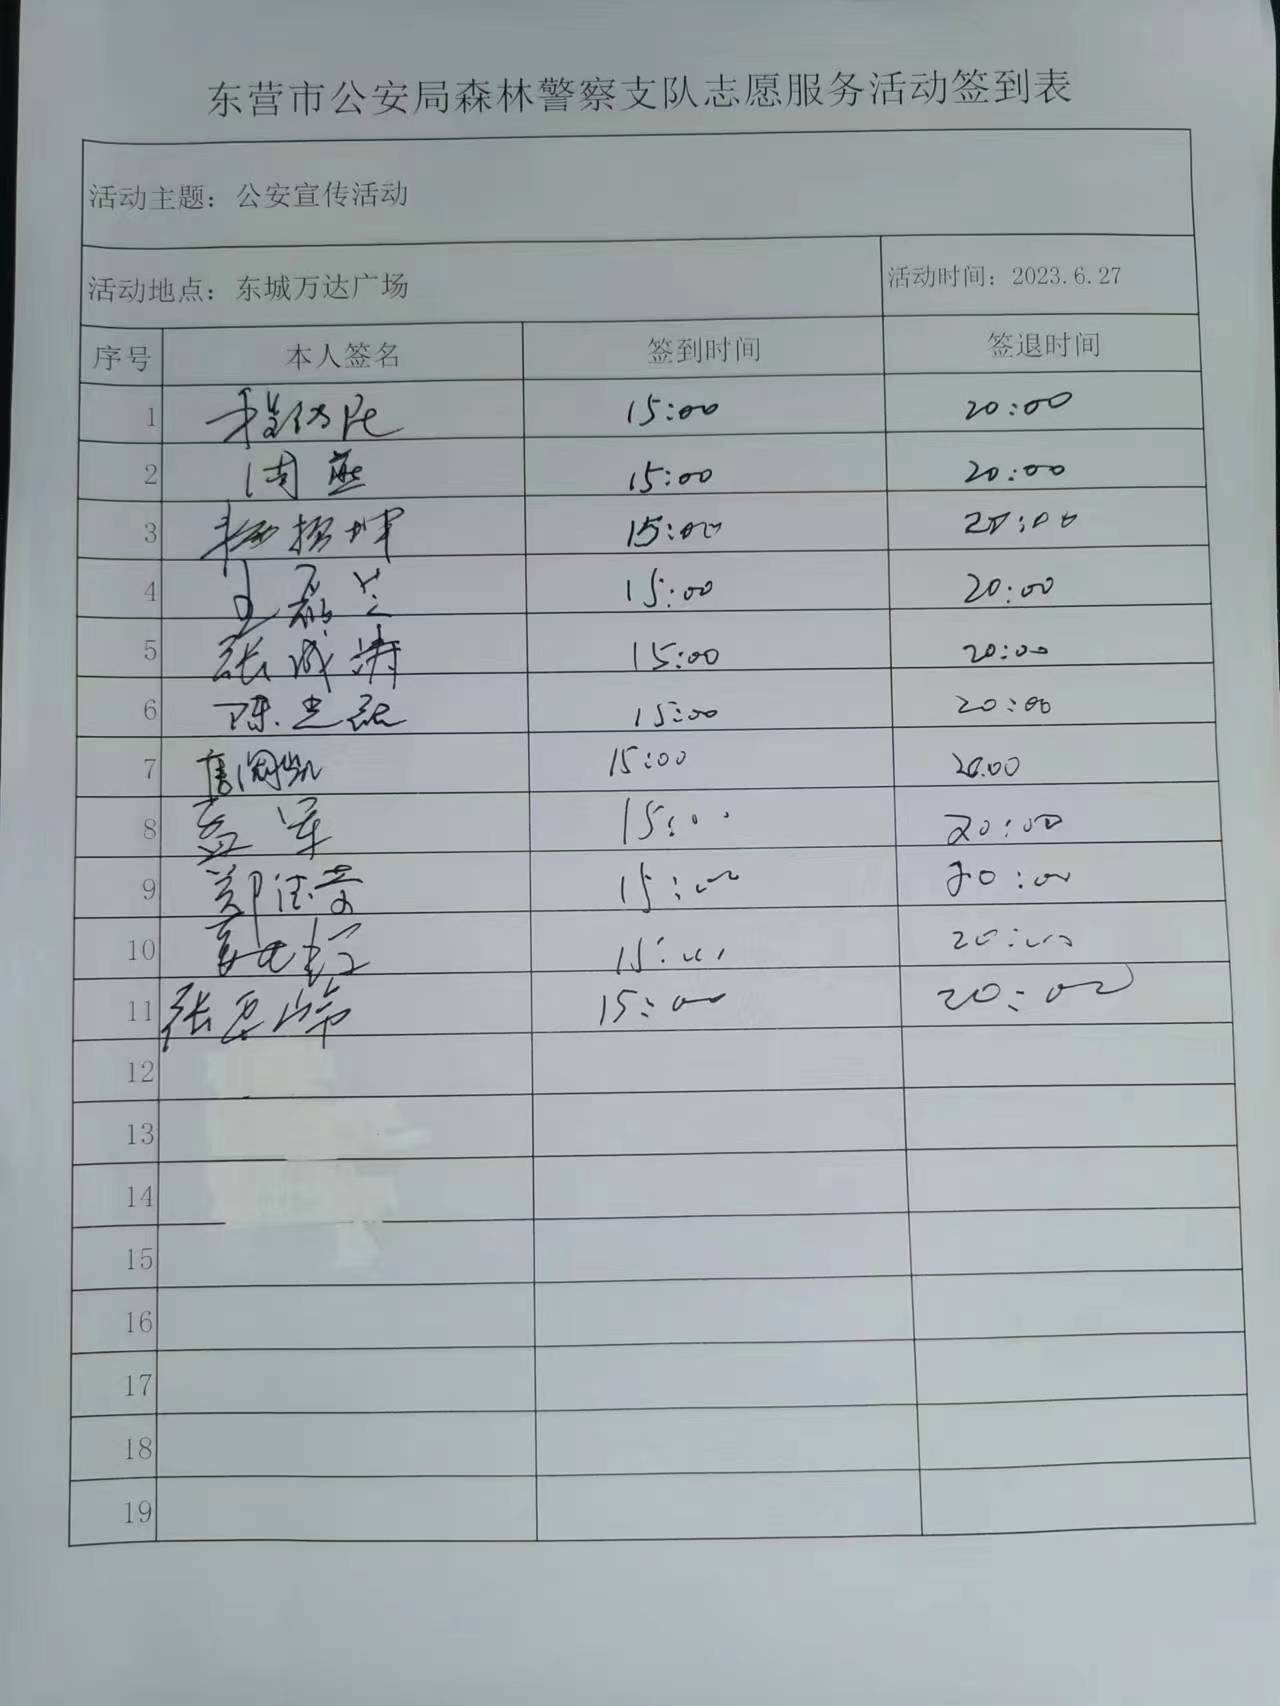 东营市公安局森林警察支队志愿服务活动签到表
活动主题：公安宣传活动
活动地点：东城万达广场 活动时间：2023.6.27
序号 本人签名 签到时间 签退时间
1 15:00 20:00
2 周燕 15:00 20:00
3 杨振坤 15:00 20:00
4 王磊 15:00 20:00
5 张成涛 15:00 20:00
6 陈志 15:00 20:00
7 15:00 20:00
8 孟军 15:00 20:00
9 郑德荣 15:00 20:00
10 15:00 20:00
11 张 15:00 20:00
12
13
14
15
16
17
18
19